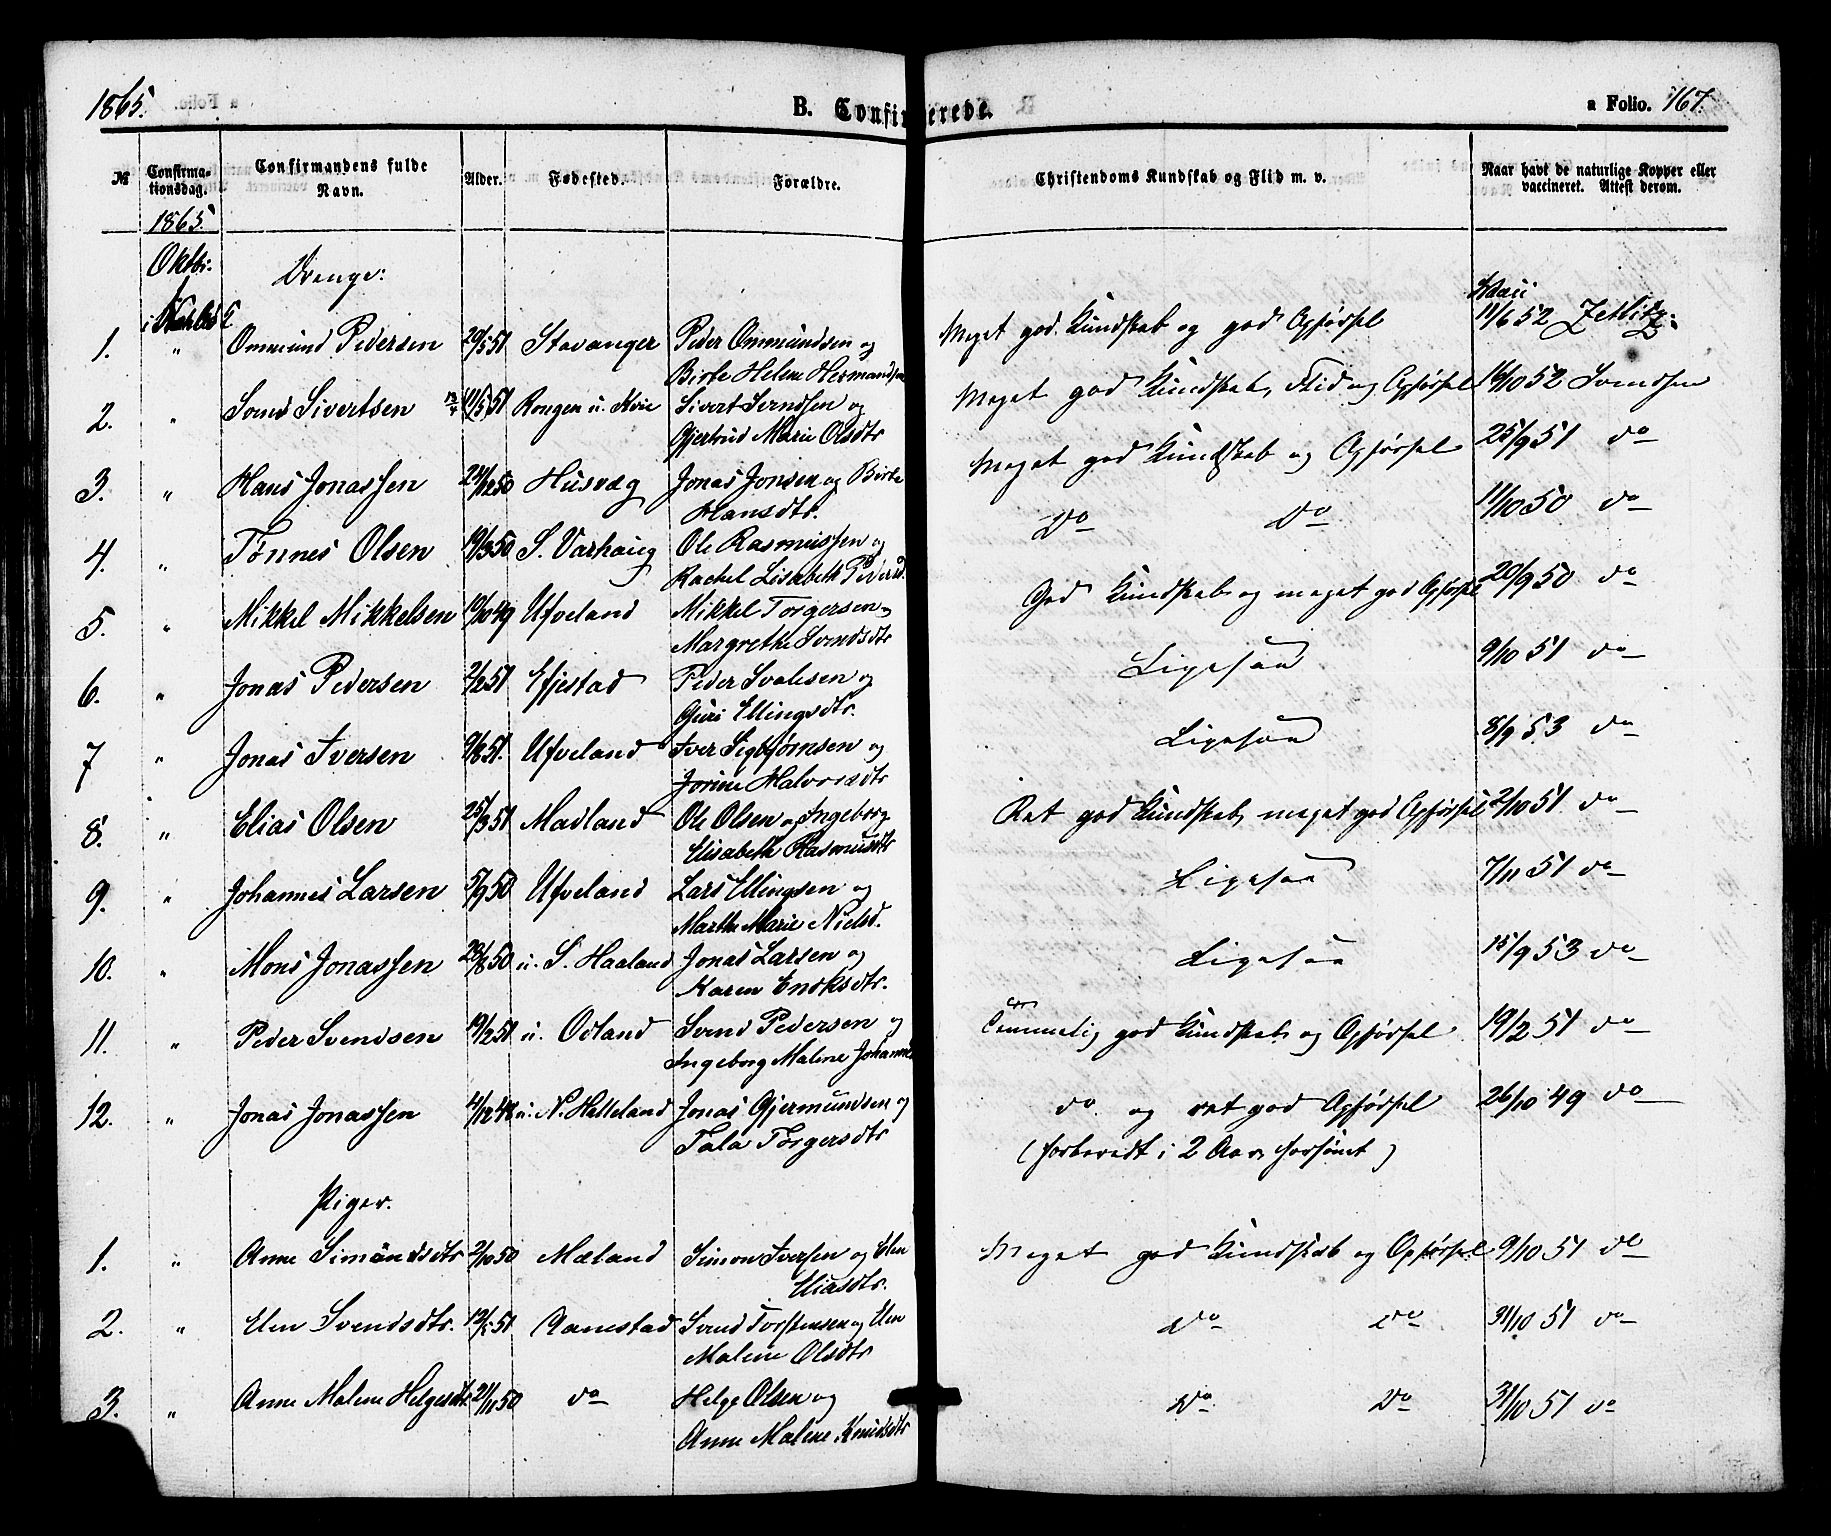 1865.
B. Confirmerede.
a Folio. 167.
№
Confirma-
tionsdag.
Confirmandens fulde
Navn.
Alder.
Fødested.
Forældre.
Christendoms Kundskab og Flid m. v.
Naar havt de naturlige Kopper eller
vaccineret. Attest derom.
1865.
Oktbr.
Drenge:
1. " Ommund Pedersen 20/5 51 Stavanger Peder Ommundsen og
Birte Helene Hermandsen
Meget god Kundskab og god Opførsel 11/6 52 Zetlitz.
2. " Svend Sivertsen 11/5 51 Rongen u. Kvie Sivert Svendsen og
Gjertrud Marie Olsdtr
Meget god Kundskab, Flid og Opførsel 14/10 52 Svendsen
3. " Hans Jonassen 24/12 50 Husvæg Jonas Jonsen og Birte
Hansdtr.
Meget god Kundskab og Opførsel 25/9 51 do
4. " Tønnes Olsen 19/3 50 S. Varhaug Ole Rasmussen og
Rachel Lisabeth Pedersd.
Do Do 11/10 50 do
5. " Mikkel Mikkelsen 19/10 49 Ufveland Mikkel Torgersen og
Margrethe Svendsdtr
God Kundskab og meget god Opførsel 20/9 50 do
6. " Jonas Pedersen 2/2 51 Efjestad Peder Svalesen og
Guri Ellingsdtr.
Ligesaa 9/10 51 do
7 " Jonas Iversen 9/8 51. Ufveland Iver Sigbjørnsen og
Jorine Halvorsdtr
Ligesaa 8/9 53 do
8. " Elias Olsen 25/3 51 Madland Ole Olsen og Ingeborg
Elisabeth Rasmusdtr
Ret god Kundskab, meget god Opførsel 2/10 51 do
9. " Johannes Larsen 5/9 50 Ufveland Lars Ellingsen og
Marthe Marie Nielsd.
Ligesaa 7/11 51 do
10. " Mons Jonassen 23/8 50 u. S. Haaland Jonas Larsen og
Karen Eriksdtr.
Ligesaa 15/9 53 do
11. " Peder Svendsen 19/2 51 u. Odland Svend Pedersen og
Ingeborg Malene
Temmelig god Kundskab og Opførsel 19/2 51 do
12. " Jonas Jonassen 4/12 48 u. N. Hatteland Jonas Gjermundsen og
Tala Torgersdtr
do og ret god Opførsel 26/10 49 do
(forberedt i 2 Aar, forsømt)
Piger.
1. " Anne Simonsdtr 2/10 50 Mæland Simon Iversen og Elen
Eliasdtr.
Meget god Kundskab og Opførsel 9/10 51 do
2. " Elen Svendsdtr. 12/5 51 Aanestad Svend Torstensen og Elen
Malene Olsdtr
Do do 31/10 51 do
3. " Anne Malene Helgesdtr 21/11 50 do Helge Olsen og
Anne Malene Knudsdtr
Do Do 31/10 51 do